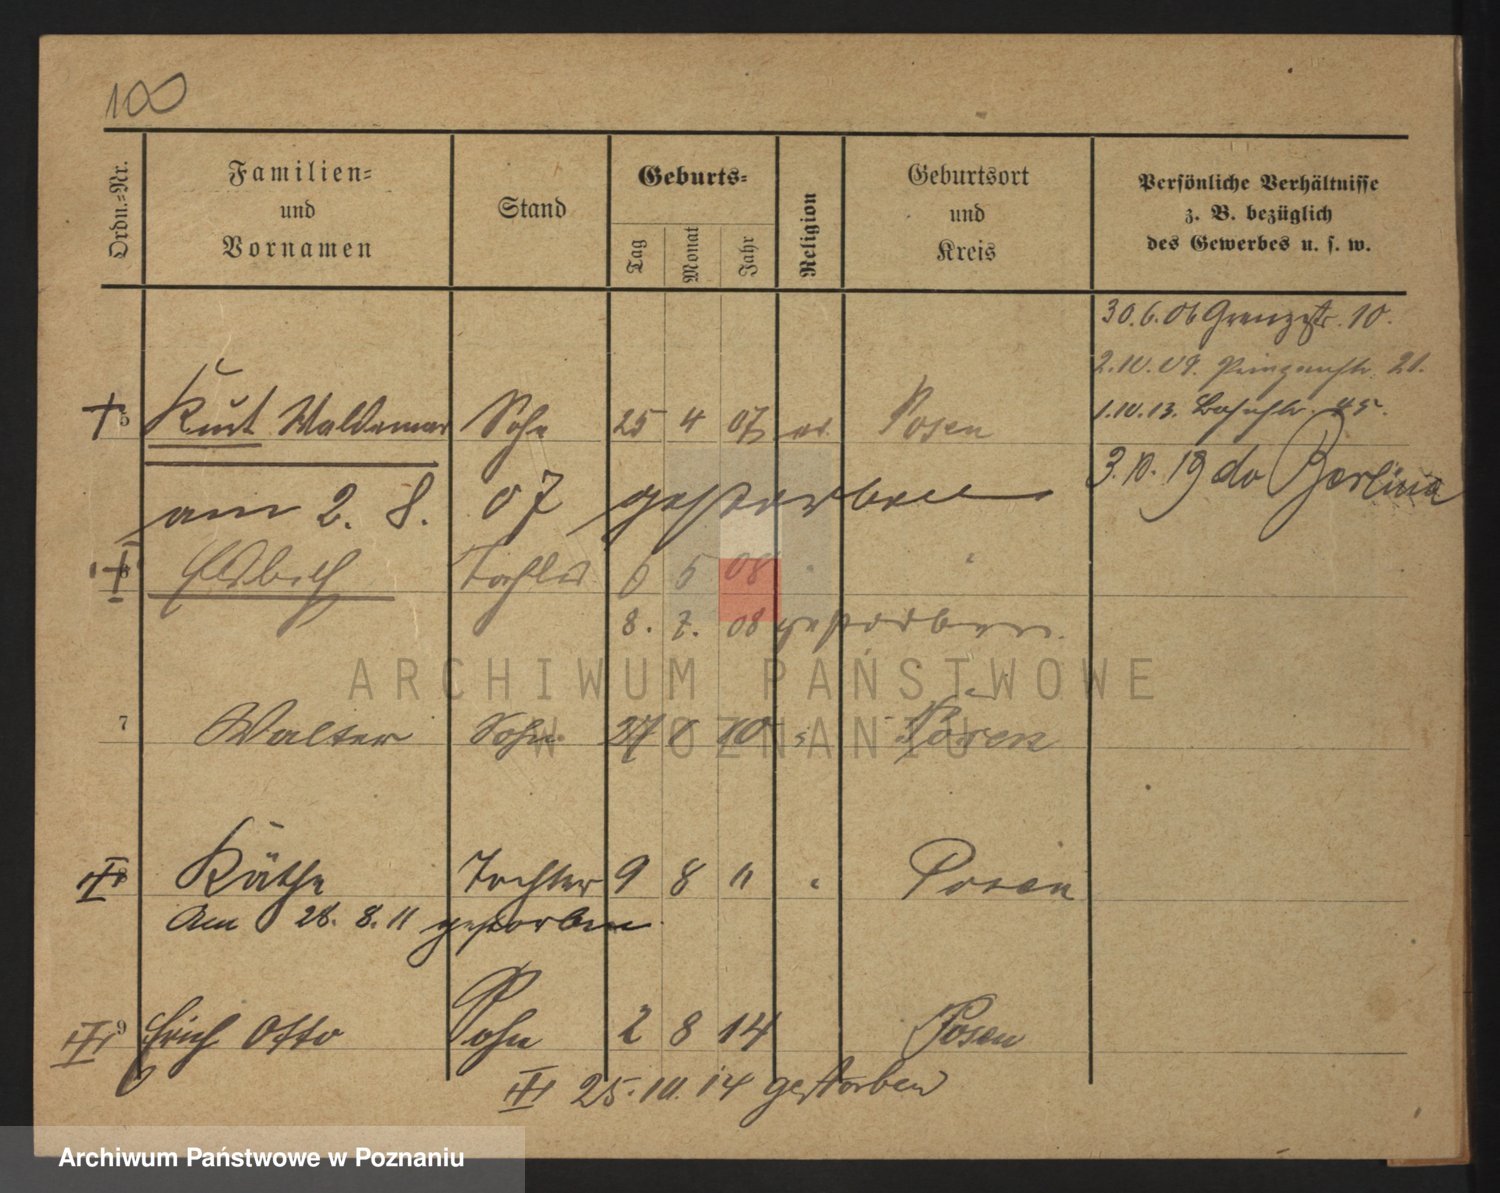 100
Ordn.-Nr.
Familien-
und
Vornamen
Stand
Geburts-
Tag
Monat
Jahr
Religion
Geburtsort
und
Kreis
Persönliche Verhältnisse
z. B. bezüglich
des Gewerbes u. s. w.
30.6.06 Grenzstr. 10.
2.10.09. Prinzenstr. 21.
1.10.13.
3.10.19 do Berlina
5 Kurt Waldemar Sohn 25 4 07 Posen
am 2. 8. 07 gestorben
Elsbeth Tochter 6 5 08
8. 7. 08 gestorben.
7 Walter Sohn 27 10 Posen
8 Käthe Tochter 9 8 11 Posen
Am 28. 8. 11 gestorben
9 Erich Otto Sohn 2 8 14 Posen
25.10.14 gestorben
ARCHIWUM PAŃSTWOWE
W POZNANIU
Archiwum Państwowe w Poznaniu